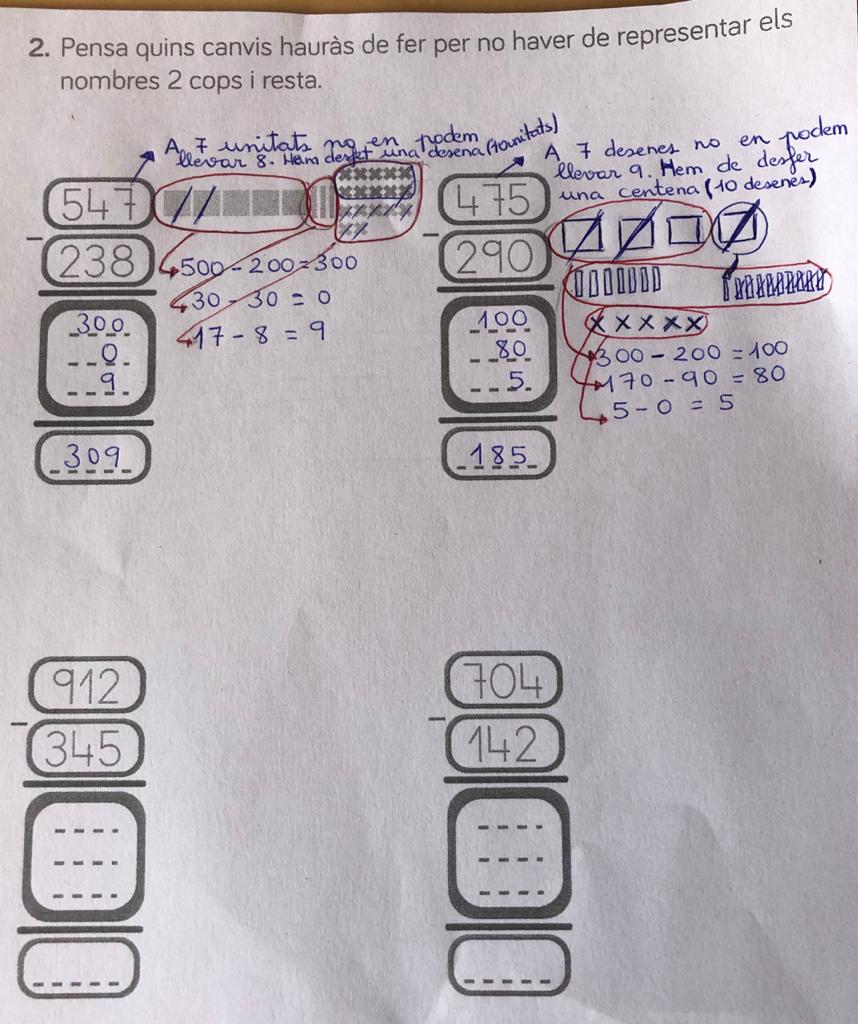 2. Pensa quins canvis hauràs de fer per no haver de representar els
nombres 2 cops i resta.
A 7 unitats no en podem
llevar 8. Hem desfet una desena (10 unitats)
547
- 238
300
0
9
309
500 - 200 = 300
30 - 30 = 0
17 - 8 = 9
A 7 desenes no en podem
llevar 9. Hem de desfer
una centena (10 desenes)
475
- 290
100
80
5
185
300 - 200 = 100
170 - 90 = 80
5 - 0 = 5
912
- 345
704
- 142